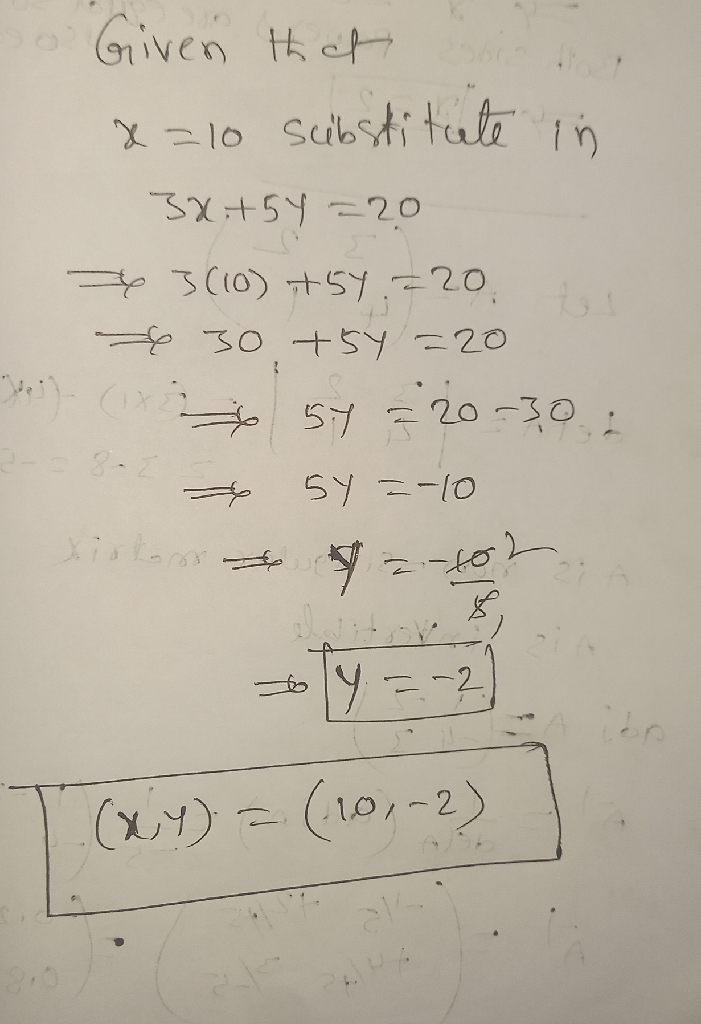 Given that
x = 10 substitute in
3x + 5y = 20
⇒ 3(10) + 5y = 20
⇒ 30 + 5y = 20
⇒ 5y = 20 - 30
⇒ 5y = -10
⇒ y = -10/5 2 1
⇒ y = -2
(x, y) = (10, -2)